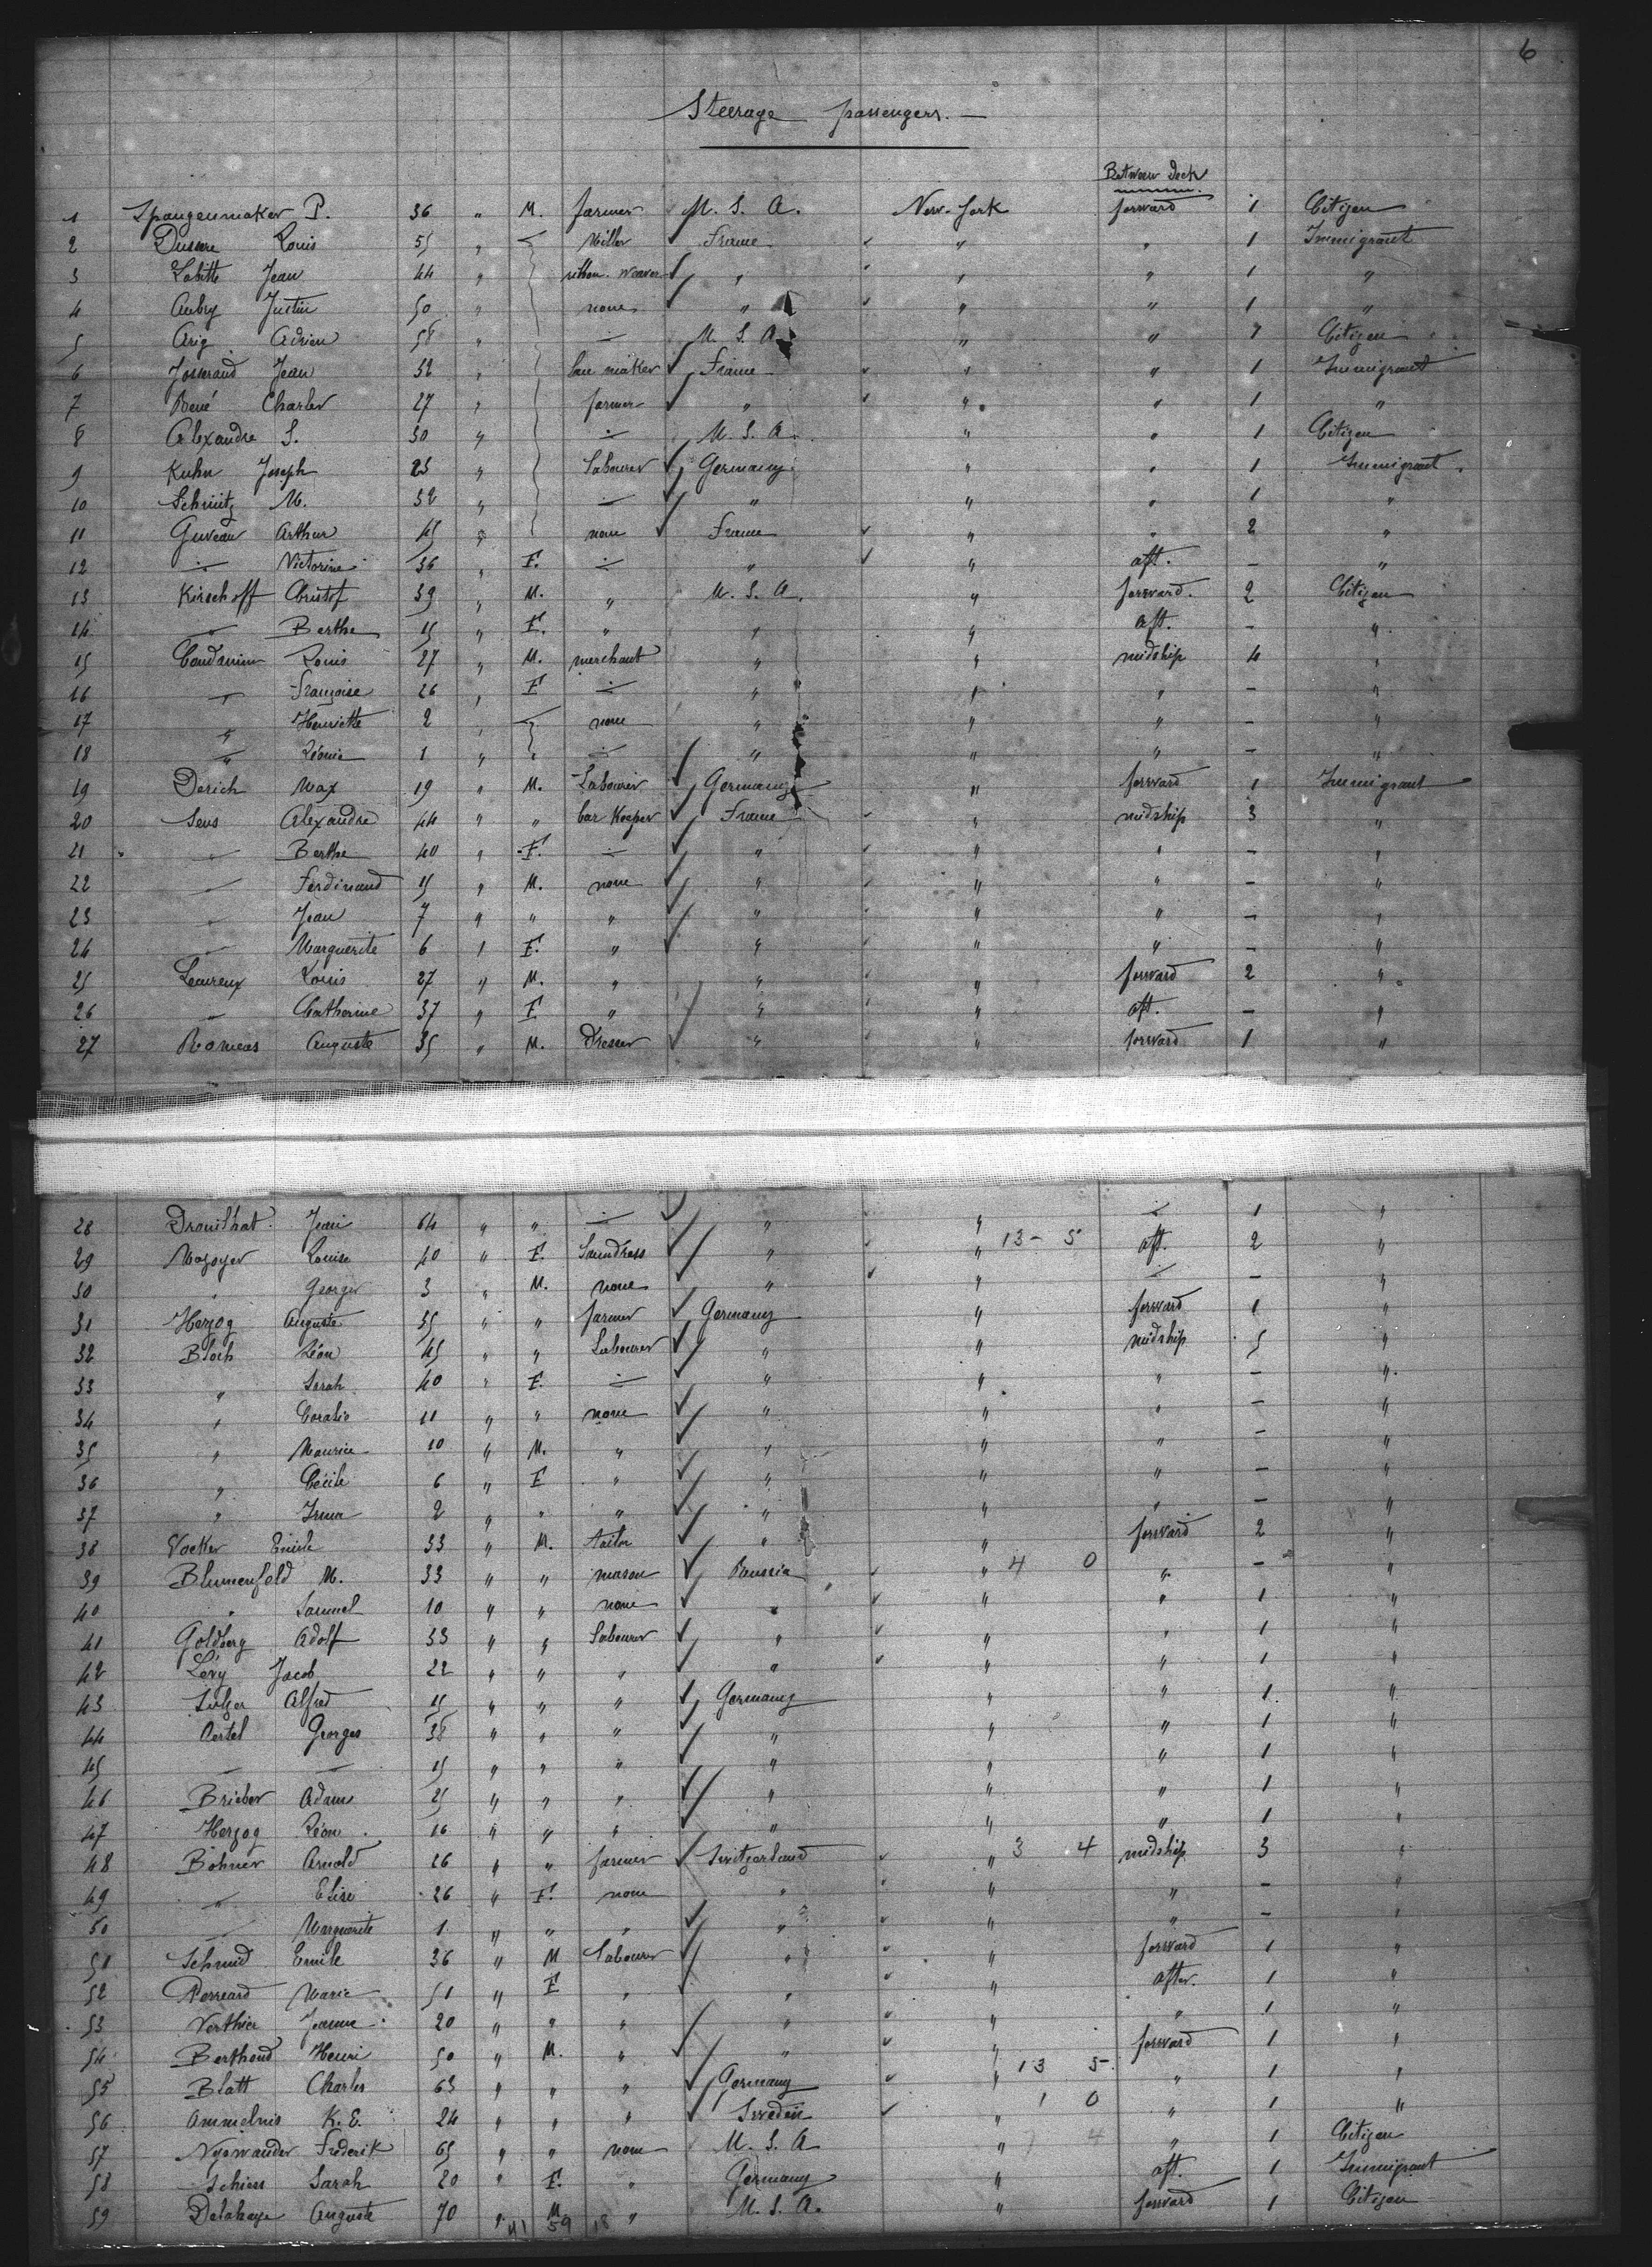 6
Steerage passengers. —
Between Deck
1 Spangenmaker P. 36 " M. farmer U. S. A. New-York forward 1 Citizen
2 Louis 55 " Miller France " " 1 Immigrant
3 Labitte Jean 44 " ribbon weaver " " " 1 "
4 Aubry Justin 50 " none " " " 1 "
5 Arig Adrien 58 " — U. S. A. " " 1 Citizen
6 Josserand Jean 52 " maker France " " 1 Immigrant
7 René Charles 27 " farmer " " " 1 "
8 Alexandre S. 50 " — U. S. A. " " 1 Citizen
9 Kuhn Joseph 23 " Labourer Germany " " 1 Immigrant
10 Schmitz M. 52 " — " " " 1 "
11 Arthur 45 " none France " " 2 "
12 — Victorine 36 " F. — " " aft. — "
13 Kirschoff Christof 39 " M. " U. S. A. " forward 2 Citizen
14 " Berthe 15 " F. " " " aft. — "
15 Louis 27 " M. merchant " " midship 4 "
16 " Françoise 26 " F — " " " — "
17 " Henriette 2 " none " " " — "
18 " Léonie 1 " " — " " " — "
19 Derich Max 19 " M. Labourer Germany " forward 1 Immigrant
20 Sens Alexandre 44 " " bar Keeper France " midship 3 "
21 " Berthe 40 " F. — " " " — "
22 " Ferdinand 15 " M. none " " " — "
23 " Jean 7 " " " " " " — "
24 " Marguerite 6 " F. " " " " — "
25 Leureux Louis 27 " M. " " " forward 2 "
26 " Catherine 37 " F " " " aft. — "
27 Romeas Auguste 35 " M. Dresser " " forward 1 "
28 Jean 64 " " — " " — 1 "
29 Mazoyer Louise 40 " F. Laundress " " 13 - 5 aft. 2 "
30 " Georges 3 " M. none " " — — "
31 Herzog Auguste 35 " " farmer Germany " forward 1 "
32 Bloch Léon 45 " " Labourer " " midship 5 "
33 " Sarah 40 " F. — " " " — "
34 " Coralie 11 " " none " " " — "
35 " Maurice 10 " M. " " " " — "
36 " Cécile 6 " F " " " " — "
37 " Irma 2 " " " " " " — "
38 Vocker Emile 33 " M. tailor " " forward 2 "
39 Blumenfeld M. 33 " " mason Russia " 4 0 " — "
40 " Samuel 10 " " none " " " 1 "
41 Goldberg Adolf 33 " " Labourer " " " 1 "
42 Lévy Jacob 22 " " " " " " 1 "
43 Sulzer Alfred 15 " " " Germany " " 1 "
44 Oertel Georges 38 " " " " " " 1 "
45 — — 15 " " " " " " 1 "
46 Brieber Adam 25 " " " " " " 1 "
47 Herzog Léon 16 " " " " " " 1 "
48 Böhner Arnold 26 " " farmer Switzerland " 3 4 midship 3 "
49 " Elise 26 " F. none " " " — "
50 " Marguerite 1 " " " " " " — "
51 Schmid Emile 36 " M Labourer " " forward 1 "
52 Perreard Marie 51 " F " " " after. 1 "
53 Verthier Jeanne 20 " " " " " " 1 "
54 Berthoud Henri 50 " M. " " " forward 1 "
55 Blatt Charles 63 " " " Germany " 13 5 " 1 "
56 Ammelnis K. E. 24 " " " Sweden " 1 0 " 1 "
57 Nyswander Frederik 65 " " none U. S. A " 7 4 " 1 Citizen
58 Schiess Sarah 20 " F. " Germany " aft. 1 Immigrant
59 Delahaye Auguste 70 " M " U. S. A. " forward 1 Citizen
41 59 18